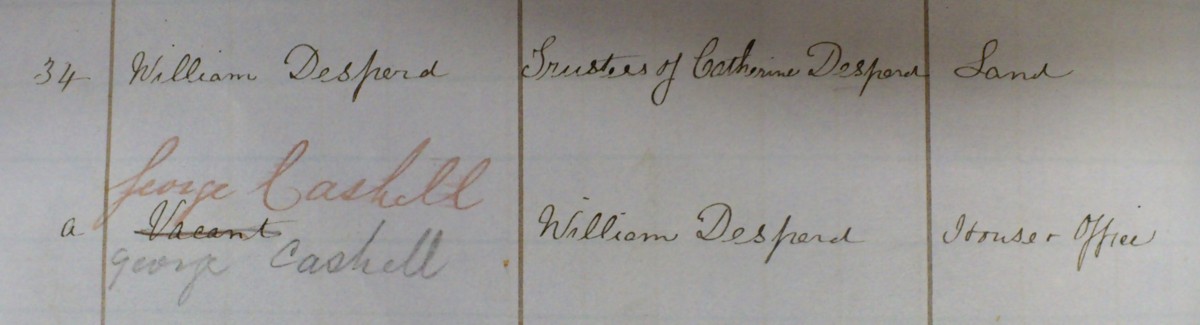 34 William Desperd Trustees of Catherine Desperd Land
George Cashell
a Vacant William Desperd House & Office
George Cashell